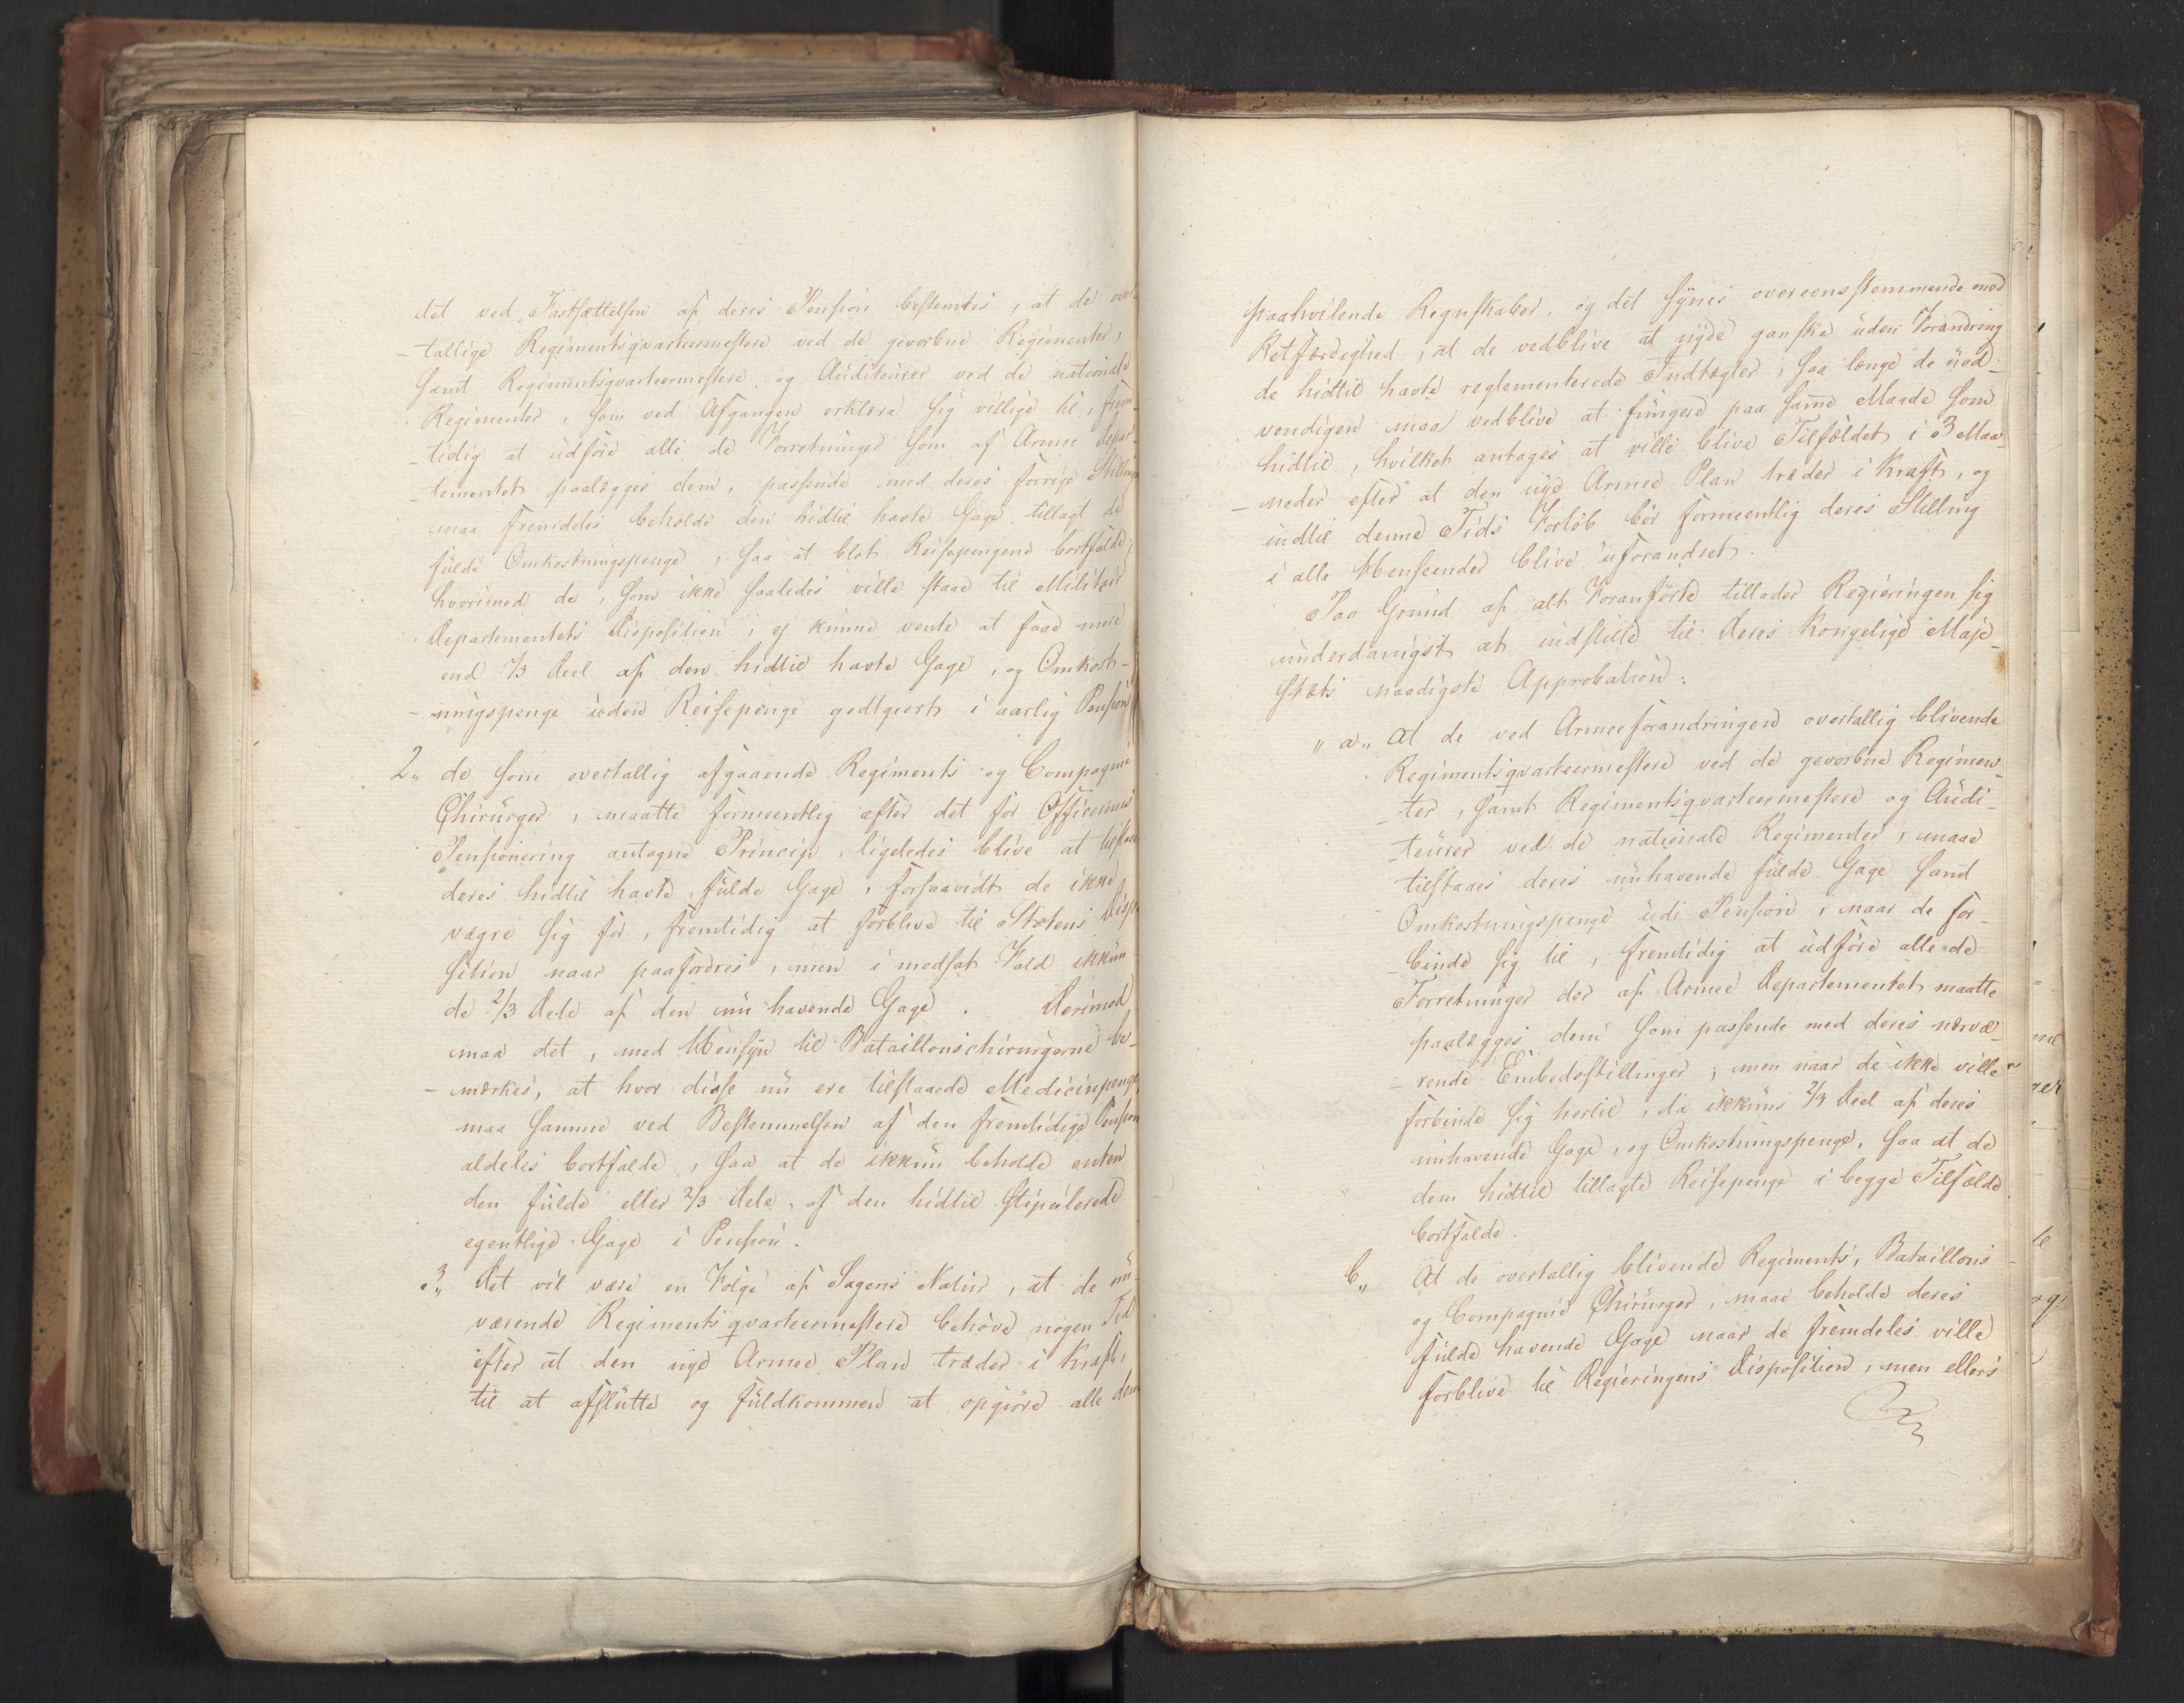 det ved Fastsættelsen af deres Pension bestemtes, at de over-
-tallige Regimentsqvarteermestere ved de gevorbne Regimenter,
samt Regimentsqvarteermestere og Auditeurer ved de nationale
Regimenter, som ved Afgangen erklære sig villige til, frem-
-tidig at udføre alle de Forretninger som af Armee Depar-
-tementet paalægges dem, passende med deres forrige Stilling
maa fremdeles beholde den hidtil havte Gage tillagt de
fulde Omkostningspenge, saa at blot Reisepengene bortfalde,
hvorimod de, som ikke saaledes ville staae til Militair
Departementets Disposition, ej kunne vente at faae mere
end 2/3 Deel af den hidtil havte Gage, og Omkost-
-ningspenge uden Reisepenge godtgiort i aarlig Pension
2,, de som overtallig afgaaende Regiments og Compagnie
Chirurger, maatte formeentlig efter det for Officerernes
Pensionering antagne Princip, ligeledes blive at tilstaae
deres hidtil havte fulde Gage, forsaavidt de ikke
vægre sig for, fremtidig at forblive til Statens Dispo
sition naar paafordres, men i modsat Fald ikkun
de 2/3 Dele af den nu havende Gage. Derimod
maa det, med Hensyn til Bataillonschirurgerne be-
-mærkes, at hvor disse nu ere tilstaaede Medicinpenge,
maa samme ved Bestemmelsen af den fremtidige Pension
aldeles bortfalde, saa at de ikkun beholde enten
den fulde eller 2/3 Dele af den hidtil stipulerede
egentlige Gage i Pension.
3,, Det vil være en Følge af Sagens Natur, at de nu-
værende Regimentsqvarteermestere behøve nogen Tid
efter at den nye Armee Plan træder i Kraft,
til at afslutte og fuldkommen at opgiøre alle dem
paahvilende Regnskaber, og det synes overeensstemmende med
Retfærdighed, at de vedblive at nyde ganske uden Forandring
de hidtil havte reglementerede Indtægter, saa længe de nød-
vendigen maa vedblive at fungere paa samme Maade som
hidtil, hvilket antages at ville blive Tilfældet i 3 Maa-
-neder efter at den nye Armee Plan træder i Kraft, og
indtil denne Tids Forløb bør formeentlig deres Stilling
i alle Henseender blive uforandret.
Paa Grund af alt Foranførte tillader Regieringen sig
underdanigst at indstille til Deres Kongelige Maje-
stæts naadigste Approbation:
,, a,, at de ved Armeeforandringen overtallig blivende
Regimentsqvarteermestere ved de gevorbne Regimen-
-ter, samt Regimentsqvarteermestere og Audi-
-teurer ved de nationale Regimenter, maae
tilstaaes deres nuhavende fulde Gage samt
Omkostningspenge udi Pension, naar de for-
-binde sig til, fremtidig at udføre alle de
Forretninger der af Armee Departementet maatte
paalægges dem som passende med deres nærvæ-
-rende Embedsstillinger; men naar de ikke ville
forbinde sig hertil, da ikkuns 2/3 Deel af deres
nuhavende Gage, og Omkostningspenge, saa at de
dem hidtil tillagte Reisepenge i begge Tilfælde
bortfalde.
b,, At de overtallig blivende Regiments, Bataillons
og Compagnie Chirurger, maae beholde deres
fulde havende Gage naar de fremdeles ville
forblive til Regieringens Disposition, men ellers